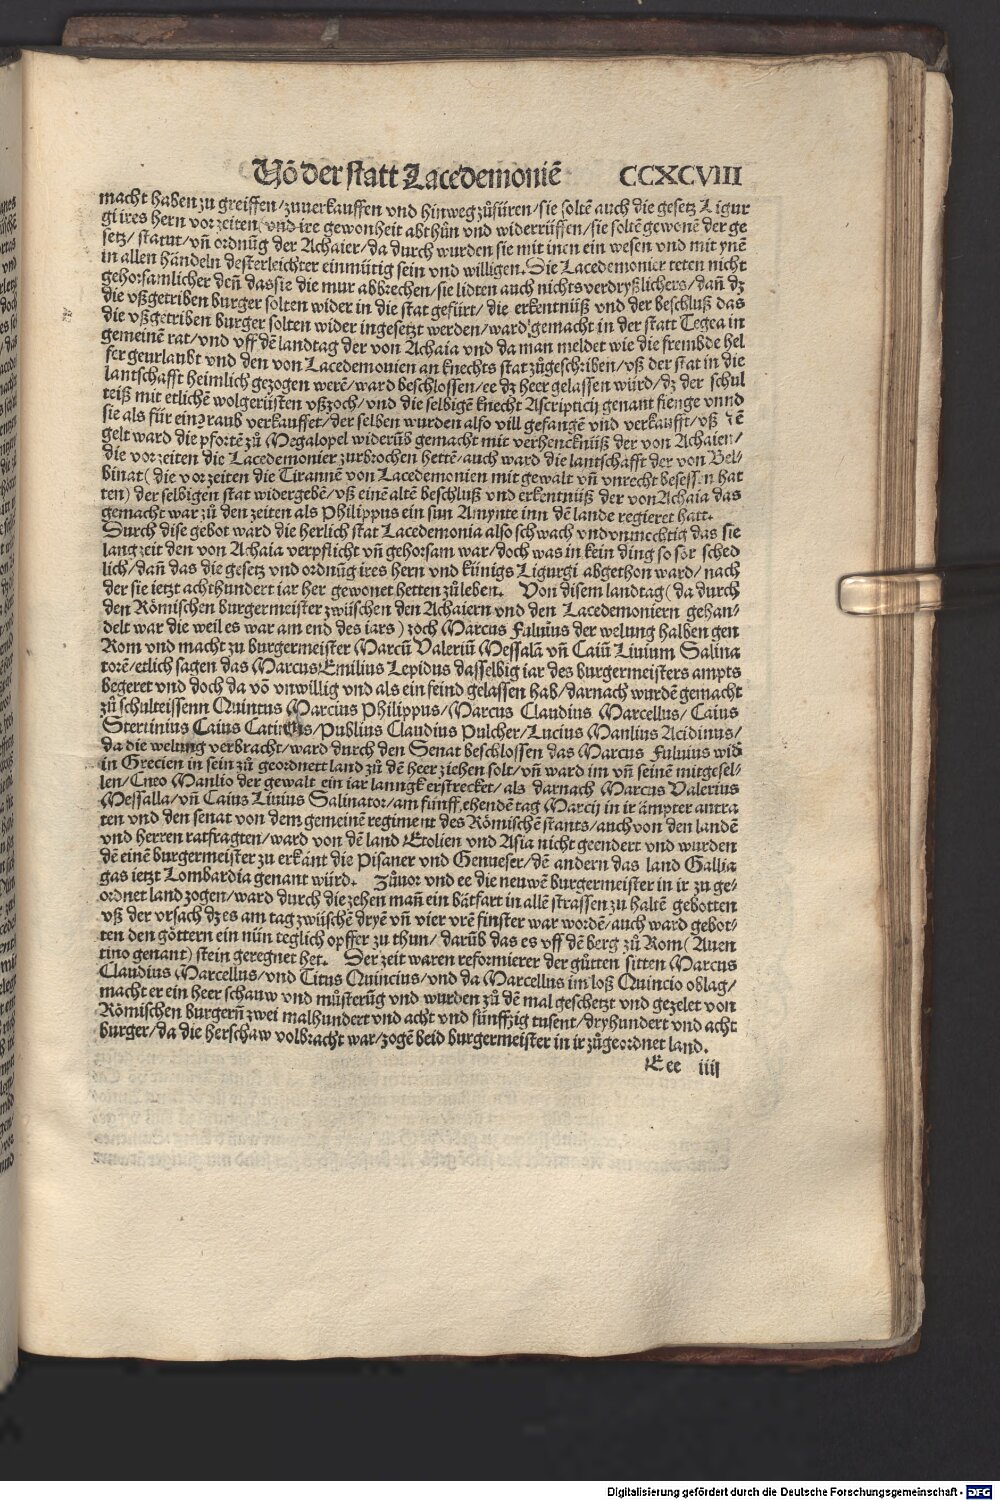 Võ der statt Lacedemoniē CCXCVIII
macht haben zu greiffen/zuuerkauffen vnd hinweg zůfüren/sie soltē auch die gesetz Ligur
gi ires hern vor zeiten/vnd ire gewonheit abthůn vnd widerrüffen/sie soltē gewonē der ge
setz/statut/vñ ordnũg der Achaier/da durch wurden sie mit inen ein wesen vnd mit ynē
in allen händeln desterleichter einmütig sein vnd willigen. Die Lacedemonier teten nicht
gehorsamlicher deñ das sie die mur abbrechen/sie lidten auch nichts verdryßlichers/dañ dz
die vßgetriben burger solten wider in die stat gefürt/die erkentnüß vnd der beschluß das
die vßgetriben burger solten wider ingesetzt werden/ward gemacht in der statt Tegea in
gemeinē rat/vnd vff dē landtag der von Achaia vnd da man meldet wie die frembde hel
fer geurlaubt vnd den von Lacedemonien an knechts stat zůgeschriben/vß der stat in die
lantschafft heimlich gezogen werē/ward beschlossen/ee dz heer gelassen würd/dz der schul
teiß mit etlichē wolgerüsten vßzoch/vnd die selbigē knecht Ascripticij genant fienge vnnd
sie als für ein raub verkauffet/der selben wurden also vill gefangē vnd verkaufft/vß dē
gelt ward die pfortē zů Megalopel widerūb gemacht mit verhencknüß der von Achaien/
die vor zeiten die Lacedemonier zurbrochen hettē/auch ward die lantschafft der von Bel-
binat(die vor zeiten die Tirannē von Lacedemonien mit gewalt vñ vnrecht besessen hat
ten) der selbigen stat widergebē/vß einē altē beschluß vnd erkentnüß der von Achaia das
gemacht war zů den zeiten als Philippus ein sun Amynte inn dē lande regieret hatt.
Durch dise gebot ward die herlich stat Lacedemonia also schwach vnd vnmechtig das sie
lang zeit den von Achaia verpflicht vñ gehorsam war/doch was in kein ding so sör sched
lich/dañ das die gesetz vnd ordnũg ires hern vnd künigs Ligurgi abgethon ward/nach
der sie ietzt achthundert iar her gewonet hetten zůleben. Von disem landtag(da durch
den Römischen burgermeister zwüschen den Achaiern vnd den Lacedemoniern gehan-
delt war die weil es war am end des iars) zoch Marcus Fuluius der welung halben gen
Rom vnd macht zu burgermeister Marcū Valeriū Messalā vñ Caiū Liuium Salina
torē/etlich sagen das Marcus Emilius Lepidus dasselbig iar des burgermeisters ampts
begeret vnd doch da võ vnwillig vnd als ein feind gelassen hab/darnach wurdē gemacht
zů schulteissenn Quintus Marcius Philippus/Marcus Claudius Marcellus/Caius
Stertinius Caius Catinus/Publius Claudius Pulcher/Lucius Manlius Acidinus/
da die welung verbracht/ward durch den Senat beschlossen das Marcus Fuluius wid
in Grecien in sein zů geordnett land zů dē heer ziehen solt/vñ ward im vñ seinē mitgesel-
len/Cneo Manlio der gewalt ein iar lanngk erstrecket/als darnach Marcus Valerius
Messalla/vñ Caius Liuius Salinator/am funffzehendē tag Marcij in ir ämpter antra
ten vnd den senat von dem gemeinē regiment des Römischē stants/auch von den landē
vnd herren ratfragten/ward von dē land Etolien vnd Asia nicht geendert vnd wurden
dē einē burgermeister zu erkānt die Pisaner vnd Genueser/dē andern das land Gallia
gas ietzt Lombardia genant würd. Zůuor vnd ee die neuwē burgermeister in ir zu ge-
ordnet land zogen/ward durch die zehen mañ ein bätfart in allē strassen zu haltē gebotten
vß der vrsach dz es am tag zwüschē dryē vñ vier vrē finster war wordē/auch ward gebot-
ten den göttern ein nün teglich opffer zu thun/darūb das es vff dē berg zů Rom(Auen
tino genant) stein geregnet het. Der zeit waren reformierer der gůtten sitten Marcus
Claudius Marcellus/vnd Titus Quincius/vnd da Marcellus im loß Quincio oblag/
macht er ein heer schauw vnd můsterũg vnd wurden zů dē mal geschetzt vnd gezelet von
Römischen burgern̄ zwei malhundert vnd acht vnd fünffzig tusent/dryhundert vnd acht
burger/da die herschaw volbracht war/zogē beid burgermeister in ir zůgeordnet land.
Eee iiij
Digitalisierung gefördert durch die Deutsche Forschungsgemeinschaft - DFG